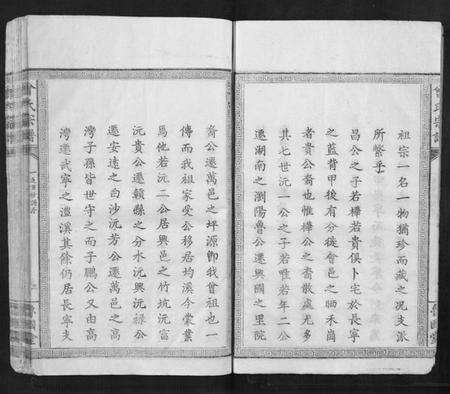 祖宗一名一物猶珍而藏之况支派
所繫乎
昌公之子若樺若貴俱卜宅於長寧
之藍背甲後有分徙會邑之晒禾崗
者貴公裔也惟樺公之裔散處尤多
其七世沅一公之子若唯若年二公
遷湖南之瀏陽魯公遷興國之里院
裔公遷萬邑之坪源即我曾祖也一
傳而我祖家受公移居均溪今棠業
焉他若沅二公居興邑之竹坑沅富
沅貴公遷贛縣之分水沅興沅祿公
遷安遠之白沙沅芳公遷萬邑之高
灣子孫皆世守之而子鵬公又由高
灣遷武寧之溫溪其餘仍居長寧支
氏宗譜